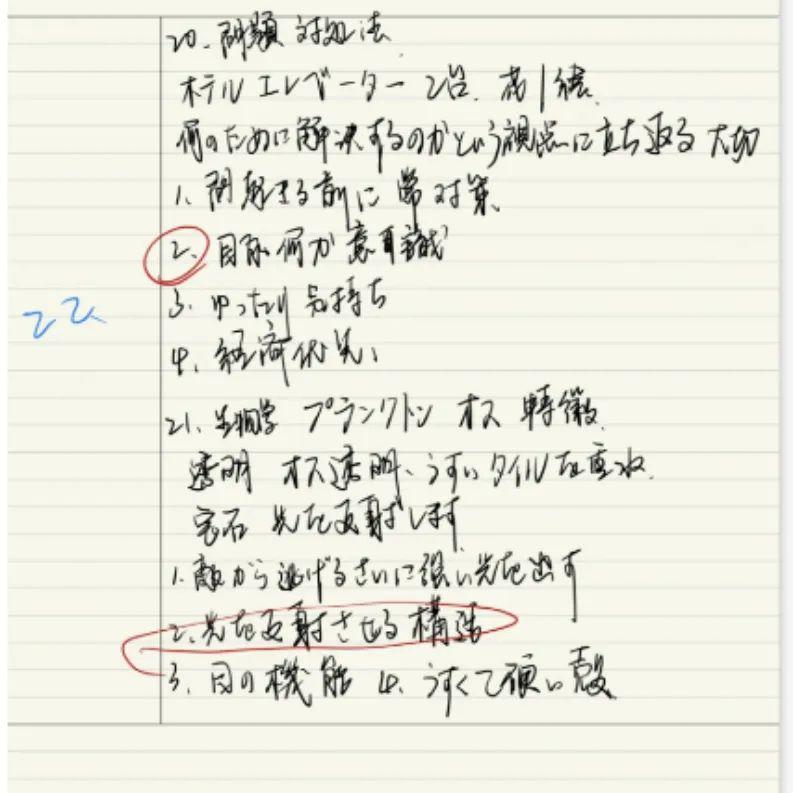 20. 問題 対処法
ホテル エレベーター 2台. 1
何のために解決するのかという視点に立ち返る 大切
1. 問題 る前に 対策.
2. 目的 何か 意識
3. ゆったり 気持ち
4. 経済優先.
21. 生物学 プランクトン オス 特徴.
透明 オス透明、うすいタイルを重ね.
宝石 光を反射します
1. 敵から逃げるさいに強い光を出す
2. 光を反射させる構造
22
3. 目の機能 4. うすくて硬い殻